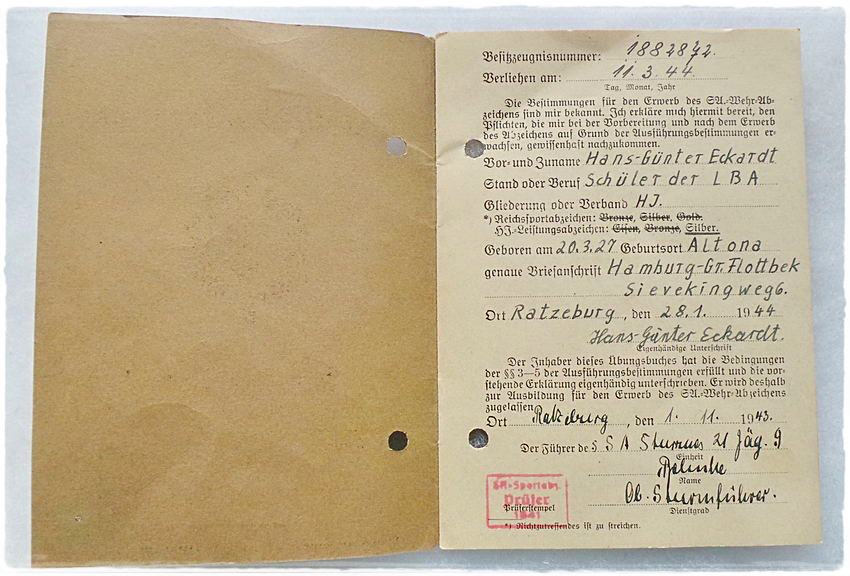 Besitzzeugnisnummer: 1882872.
Verliehen am: 11.3.44.
Tag, Monat, Jahr
Die Bestimmungen für den Erwerb des SA.-Wehr-Ab-
zeichens sind mir bekannt. Ich erkläre mich hiermit bereit, den
Pflichten, die mir bei der Vorbereitung und nach dem Erwerb
des Abzeichens auf Grund der Ausführungsbestimmungen er-
wachsen, gewissenhaft nachzukommen.
Vor- und Zuname Hans-Günter Eckardt
Stand oder Beruf Schüler der LBA
Gliederung oder Verband HJ.
*) Reichssportabzeichen: Bronze, Silber, Gold.
HJ.-Leistungsabzeichen: Eisen, Bronze, Silber.
Geboren am 20.3.27 Geburtsort Altona
genaue Briefanschrift Hamburg-Gr. Flottbek
Sievekingweg 6.
Ort Ratzeburg, den 28.1. 1944
Hans-Günter Eckardt.
Eigenhändige Unterschrift
Der Inhaber dieses Übungsbuches hat die Bedingungen
der §§ 3—5 der Ausführungsbestimmungen erfüllt und die vor-
stehende Erklärung eigenhändig unterschrieben. Er wird deshalb
zur Ausbildung für den Erwerb des SA.-Wehr-Abzeichens
zugelassen.
Ort Ratzeburg, den 1. 11. 1943.
Der Führer des SA Sturmes 21 Jäg. 9
Einheit
Name
Ob. Sturmführer.
Dienstgrad
SA-Sportabz.
Prüfer
1941
Prüferstempel
*) Nichtzutreffendes ist zu streichen.